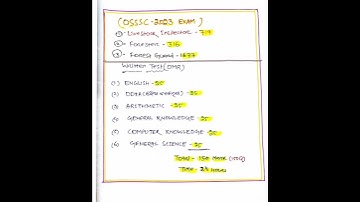 (OSSSC-2023 EXAM)
(1) - LIVESTOCK INSPECTOR - 719
(2) - FORESTER - 316
(3) - FOREST GUARD - 1677
WRITTEN TEST (OMR)
(1) ENGLISH - 30
(2) ODIA - 30
(3) ARITHMETIC - 30
(4) GENERAL KNOWLEDGE - 30
(5) COMPUTER KNOWLEDGE - 30
(6) GENERAL SCIENCE - 30
TOTAL - 150 MARK
TIME - 2 HOURS